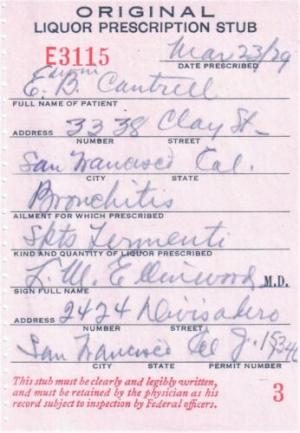 ORIGINAL
LIQUOR PRESCRIPTION STUB
E3115 Mar 23/29
DATE PRESCRIBED
Edwin
E. B. Cantrell
FULL NAME OF PATIENT
ADDRESS 3338 Clay St.
NUMBER STREET
San Francisco Cal.
CITY STATE
Bronchitis
AILMENT FOR WHICH PRESCRIBED
Spts Fermenti
KIND AND QUANTITY OF LIQUOR PRESCRIBED
L. W. Ellinwood M.D.
SIGN FULL NAME
ADDRESS 2424 Divisadero
NUMBER STREET
San Francisco Cal
CITY STATE PERMIT NUMBER
This stub must be clearly and legibly written,
and must be retained by the physician as his
record subject to inspection by Federal officers.
3